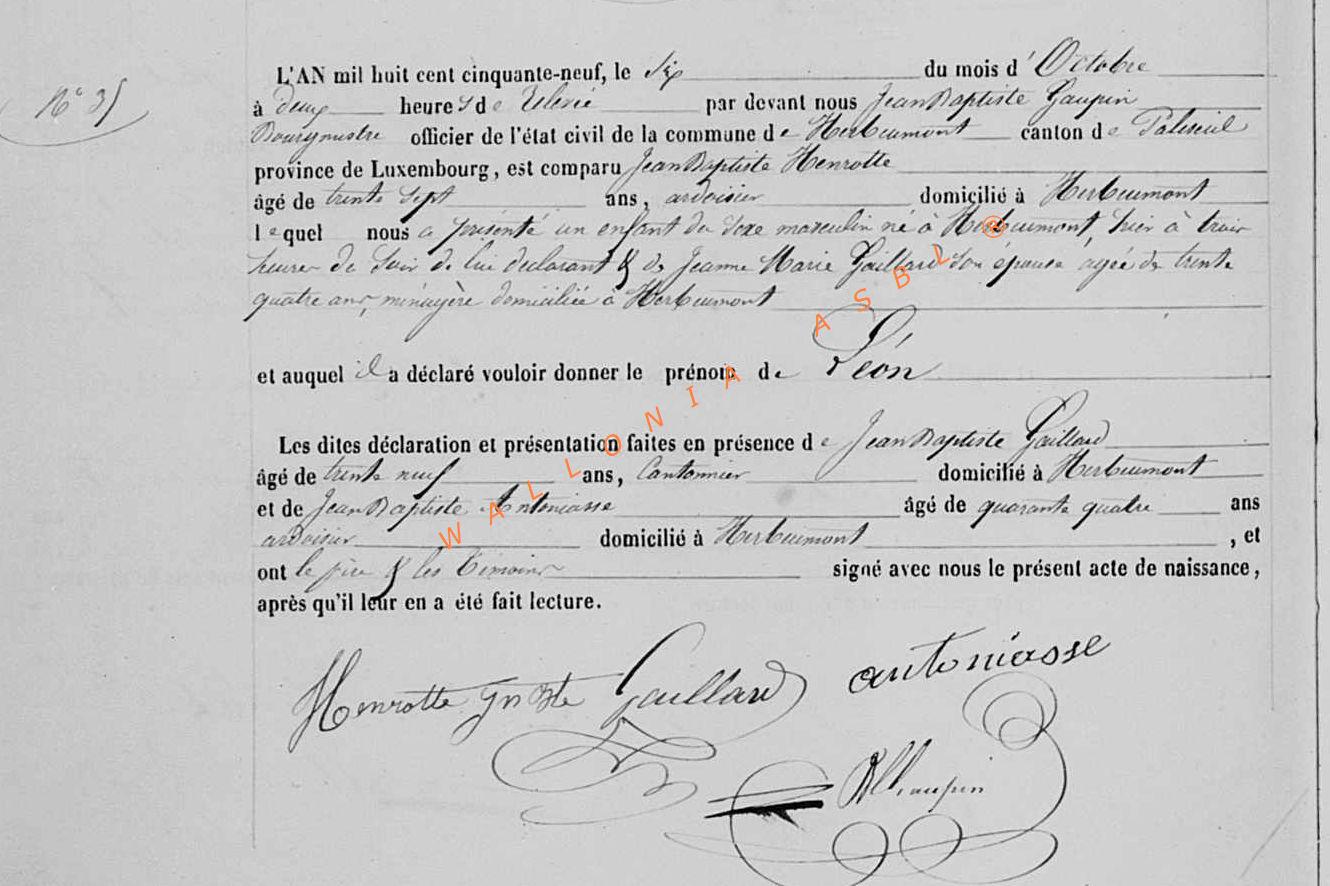 N° 35
L'AN mil huit cent cinquante-neuf, le Six du mois d' Octobre
à deux heures de Relevée par devant nous Jean Baptiste Gaupin
Bourgmestre officier de l'état civil de la commune de Herbeumont canton de Paliseul
province de Luxembourg, est comparu Jean Baptiste Henrotte
âgé de trente Sept ans, ardoisier domicilié à Herbeumont
lequel nous a présenté un enfant du Sexe masculin né à Herbeumont, hier à trois
heures du Soir de lui déclarant & de Jeanne Marie Gaillard Son épouse, agée de trente
quatre ans, ménagère domiciliée à Herbeumont
et auquel il a déclaré vouloir donner le prénom de Léon
Les dites déclaration et présentation faites en présence de Jean Baptiste Gaillard
âgé de trente neuf ans, Cantonnier domicilié à Herbeumont
et de Jean Baptiste Antoniasse âgé de quarante quatre ans
ardoisier domicilié à Herbeumont , et
ont le père & les témoins signé avec nous le présent acte de naissance,
après qu'il leur en a été fait lecture.
Henrotte Jn Bte Gaillard antoniasse
WALLONIA ASBL ®